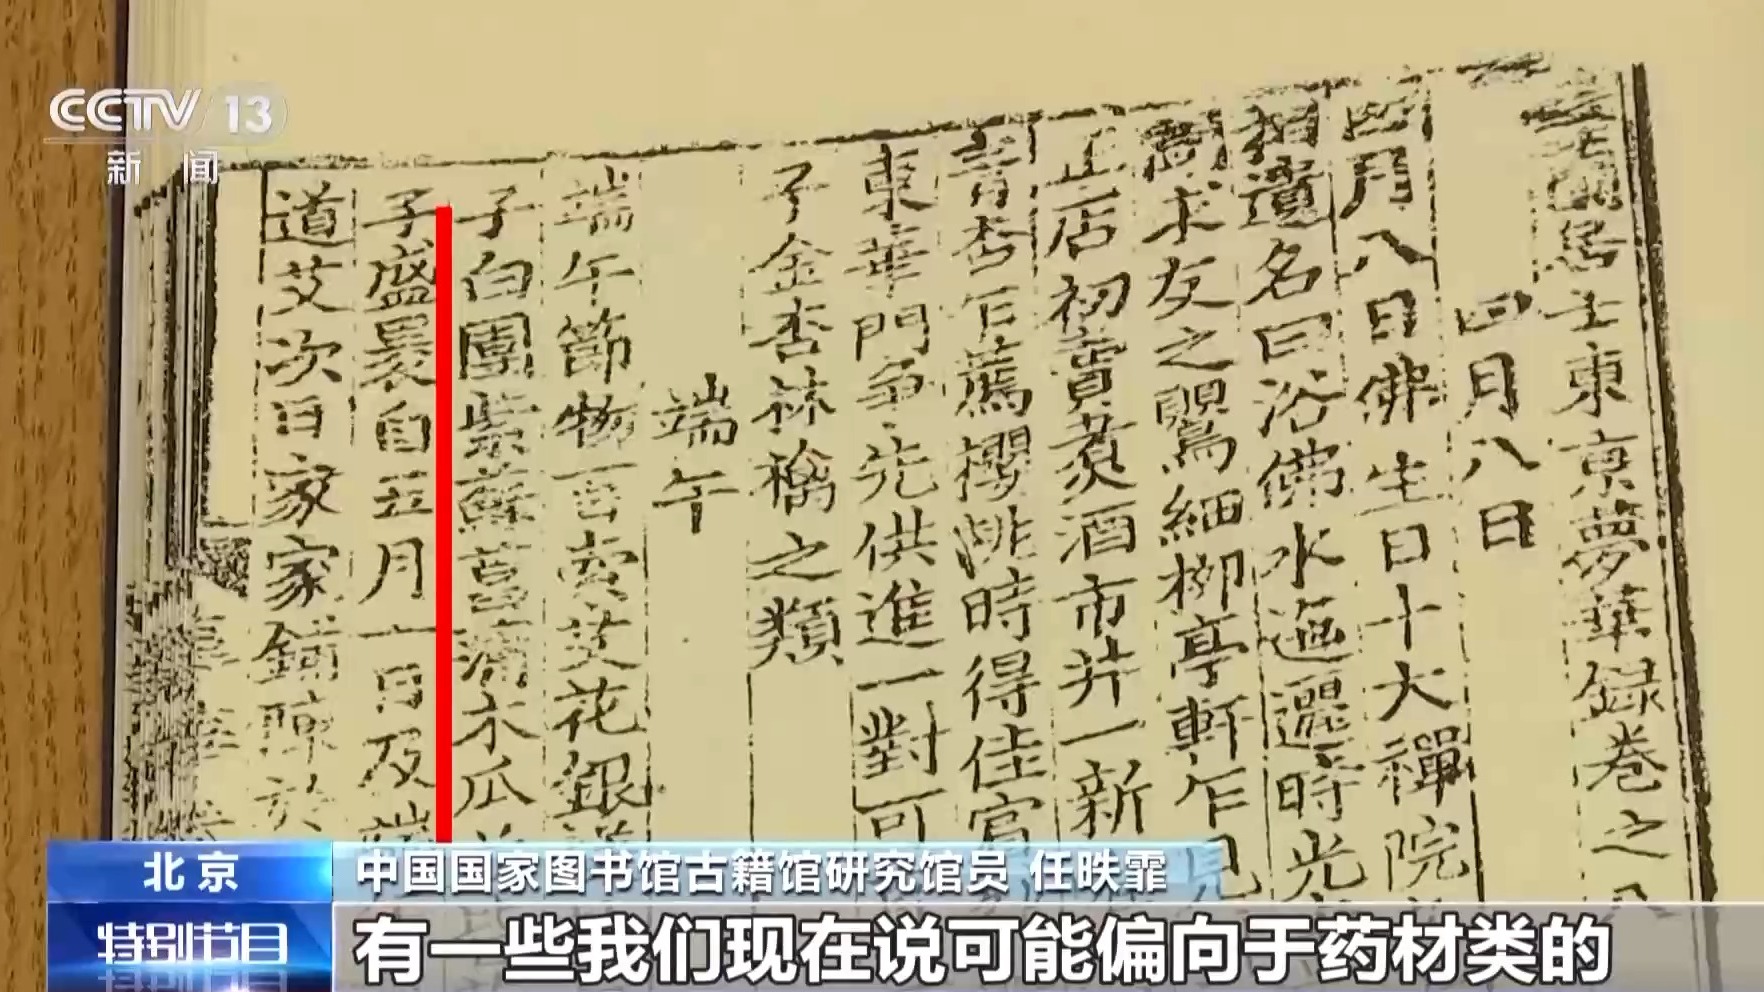 CCTV 13
新闻
居士東京夢華録卷之
四月八日
四月八日佛生日十大禪院
遺名曰浴佛水迤邐時光
求友之鸎細柳亭軒乍見
正店初賣煑酒市井一新
青杏乍薦櫻桃時得佳賓
東華門争先供進一對可
子金杏林檎之類
端午
端午節物百索艾花銀
子白團紫蘇菖蒲木瓜
子盛裹自五月一日及端
道艾次日家家鋪陳於
北京
中国国家图书馆古籍馆研究馆员 任昳霏
特别节目
有一些我们现在说可能偏向于药材类的